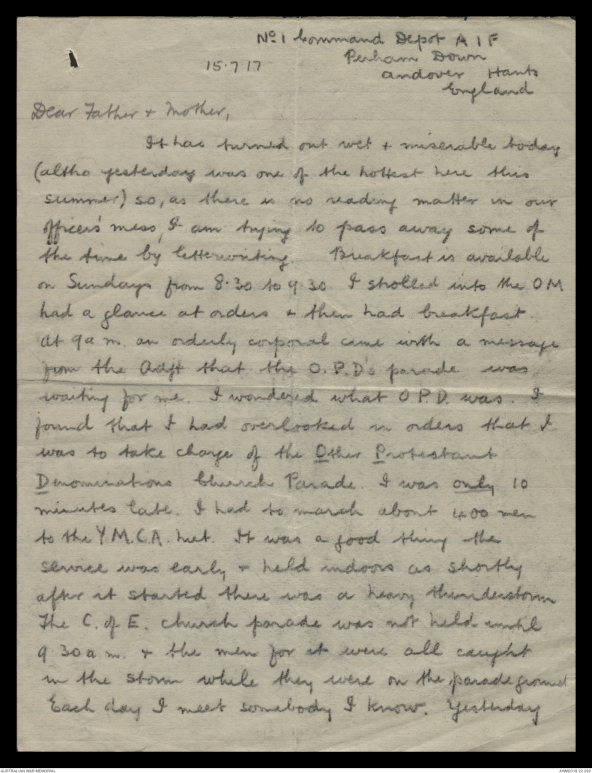 No 1 Command Depot A I F
Perham Down
15.7.17
Andover Hants
England
Dear Father + Mother,
It has turned out wet + miserable today
(altho yesterday was one of the hottest here this
summer) so, as there is no reading matter in our
officers' mess, I am trying to pass away some of
the time by letterwriting. Breakfast is available
on Sundays from 8.30 to 9.30 I strolled into the OM
had a glance at orders & then had breakfast.
At 9 a m. an orderly corporal came with a message
from the Adjt that the O.P.D's parade was
waiting for me. I wondered what O P D. was. I
found that I had overlooked in orders that I
was to take charge of the Other Protestant
Denominations Church Parade. I was only 10
minutes late. I had to march about 400 men
to the Y.M.C.A. hut. It was a good thing the
service was early & held indoors as shortly
after it started there was a heavy thunderstorm
The C. of E. church parade was not held until
9.30 a m. & the men for it were all caught
in the storm while they were on the parade ground
Each day I meet somebody I know. Yesterday
AUSTRALIAN WAR MEMORIAL